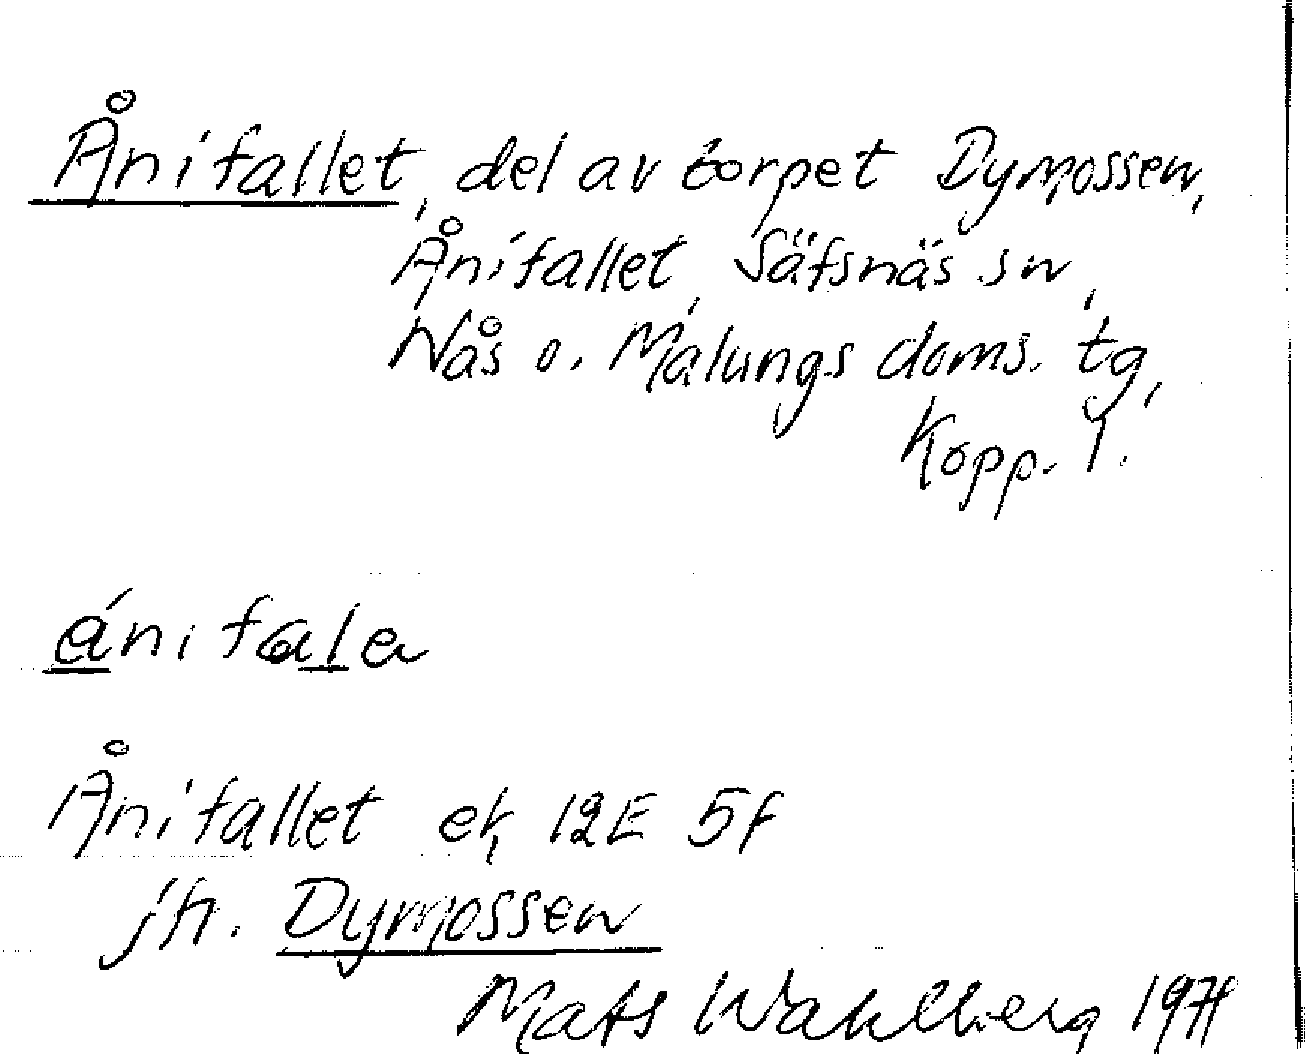 Ånifallet, del av torpet Dymossen,
Ånifallet, Säfsnäs sn,
Nås o. Malungs doms. tg,
Kopp. l.
ánifala
Ånifallet ek, 12E 5f
jfr. Dymossen
Mats Wahlberg